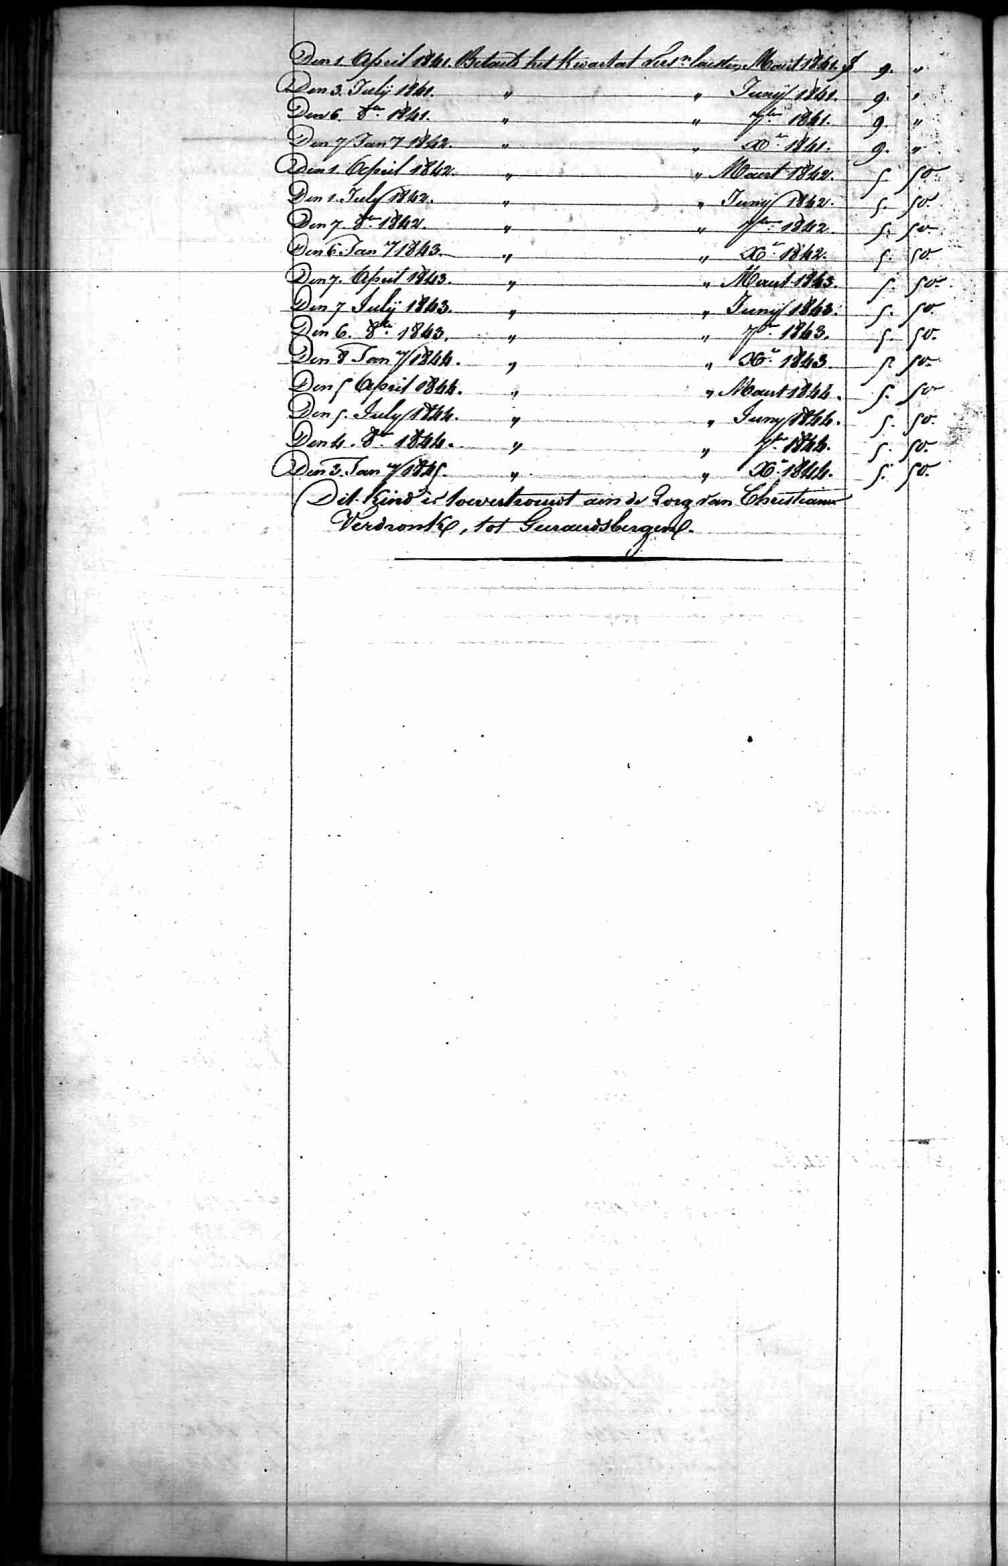 Den 1. April 1841. Betaelt het Kwartael Verst.n laesten Maert 1841. f 9. "
Den 3. July 1841. " " Juny 1841. 9. "
Den 6. 8.er 1841. " " 7.ber 1841. 9. "
Den 7 Jan.y 1842. " " X.r 1841. 9. "
Den 1. April 1842. " " Maert 1842. 5. 50.
Den 1. July 1842. " " Juny 1842. 5. 50
Den 7. 8.er 1842. " " 7.ber 1842 5. 50
Den 6. Jan.y 1843. " " X.r 1842. 5. 50.
Den 7. April 1843. " " Maert 1843. 5. 50.
Den 7 July 1843. " " Juny 1843. 5. 50.
Den 6. 8.er 1843. " " 7.er 1843. 5. 50.
Den 8 Jan.y 1844. " " X.r 1843. 5. 50.
Den 5 April 1844. " " Maert 1844. 5. 50
Den 5. July 1844. " " Juny 1844. 5. 50.
Den 4. 8.er 1844. " " 7.ber 1844. 5. 50.
Den 2. Jan.y 1845. " " X. 1844. 5. 50.
Dit Kind is toevertrouwt aen de Zorg van Christianus
Verdronke, tot Geeraerdsbergen.